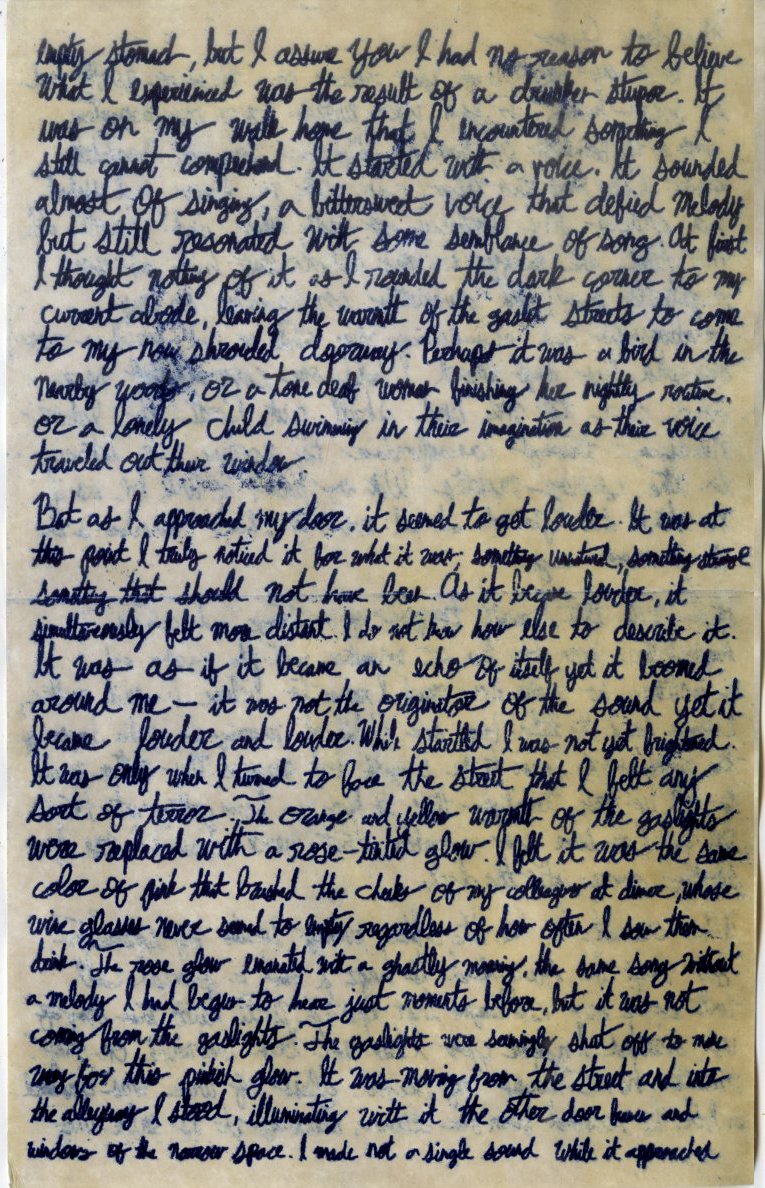 empty stomach, but I assure you I had no reason to believe
what I experienced was the result of a drunken stupor. It
was on my walk home that I encountered something I
still cannot comprehend. It started with a voice. It sounded
almost of singing, a bittersweet voice that defied melody
but still resonated with some semblance of song. At first
I thought nothing of it as I rounded the dark corner to my
current abode, leaving the warmth of the gaslit streets to come
to my now shrouded doorway. Perhaps it was a bird in the
nearby woods, or a tone deaf woman finishing her nightly routine,
or a lonely child swimming in their imagination as their voice
traveled out their window
But as I approached my door, it seemed to get louder. It was at
this point I truly noticed it for what it was, something unnatural, something strange
something that should not have been. As it began louder, it
simultaneously felt more distant. I do not know how else to describe it.
It was as if it became an echo of itself yet it boomed
around me — it was not the originator of the sound yet it
became louder and louder. While startled I was not yet frightened.
It was only when I turned to face the street that I felt any
sort of terror. The orange and yellow warmth of the gaslights
were replaced with a rose-tinted glow. I felt it was the same
color of pink that brushed the cheeks of my colleagues at dinner, whose
wine glasses never seemed to empty regardless of how often I saw them
drink. The rose glow emanated with a ghastly moaning, the same song without
a melody I had begun to hear just moments before, but it was not
coming from the gaslights. The gaslights were seemingly shut off to make
way for this pinkish glow. It was moving from the street and into
the alleyway I stood, illuminating with it the other door and
windows of the narrow space. I made not a single sound while it approached